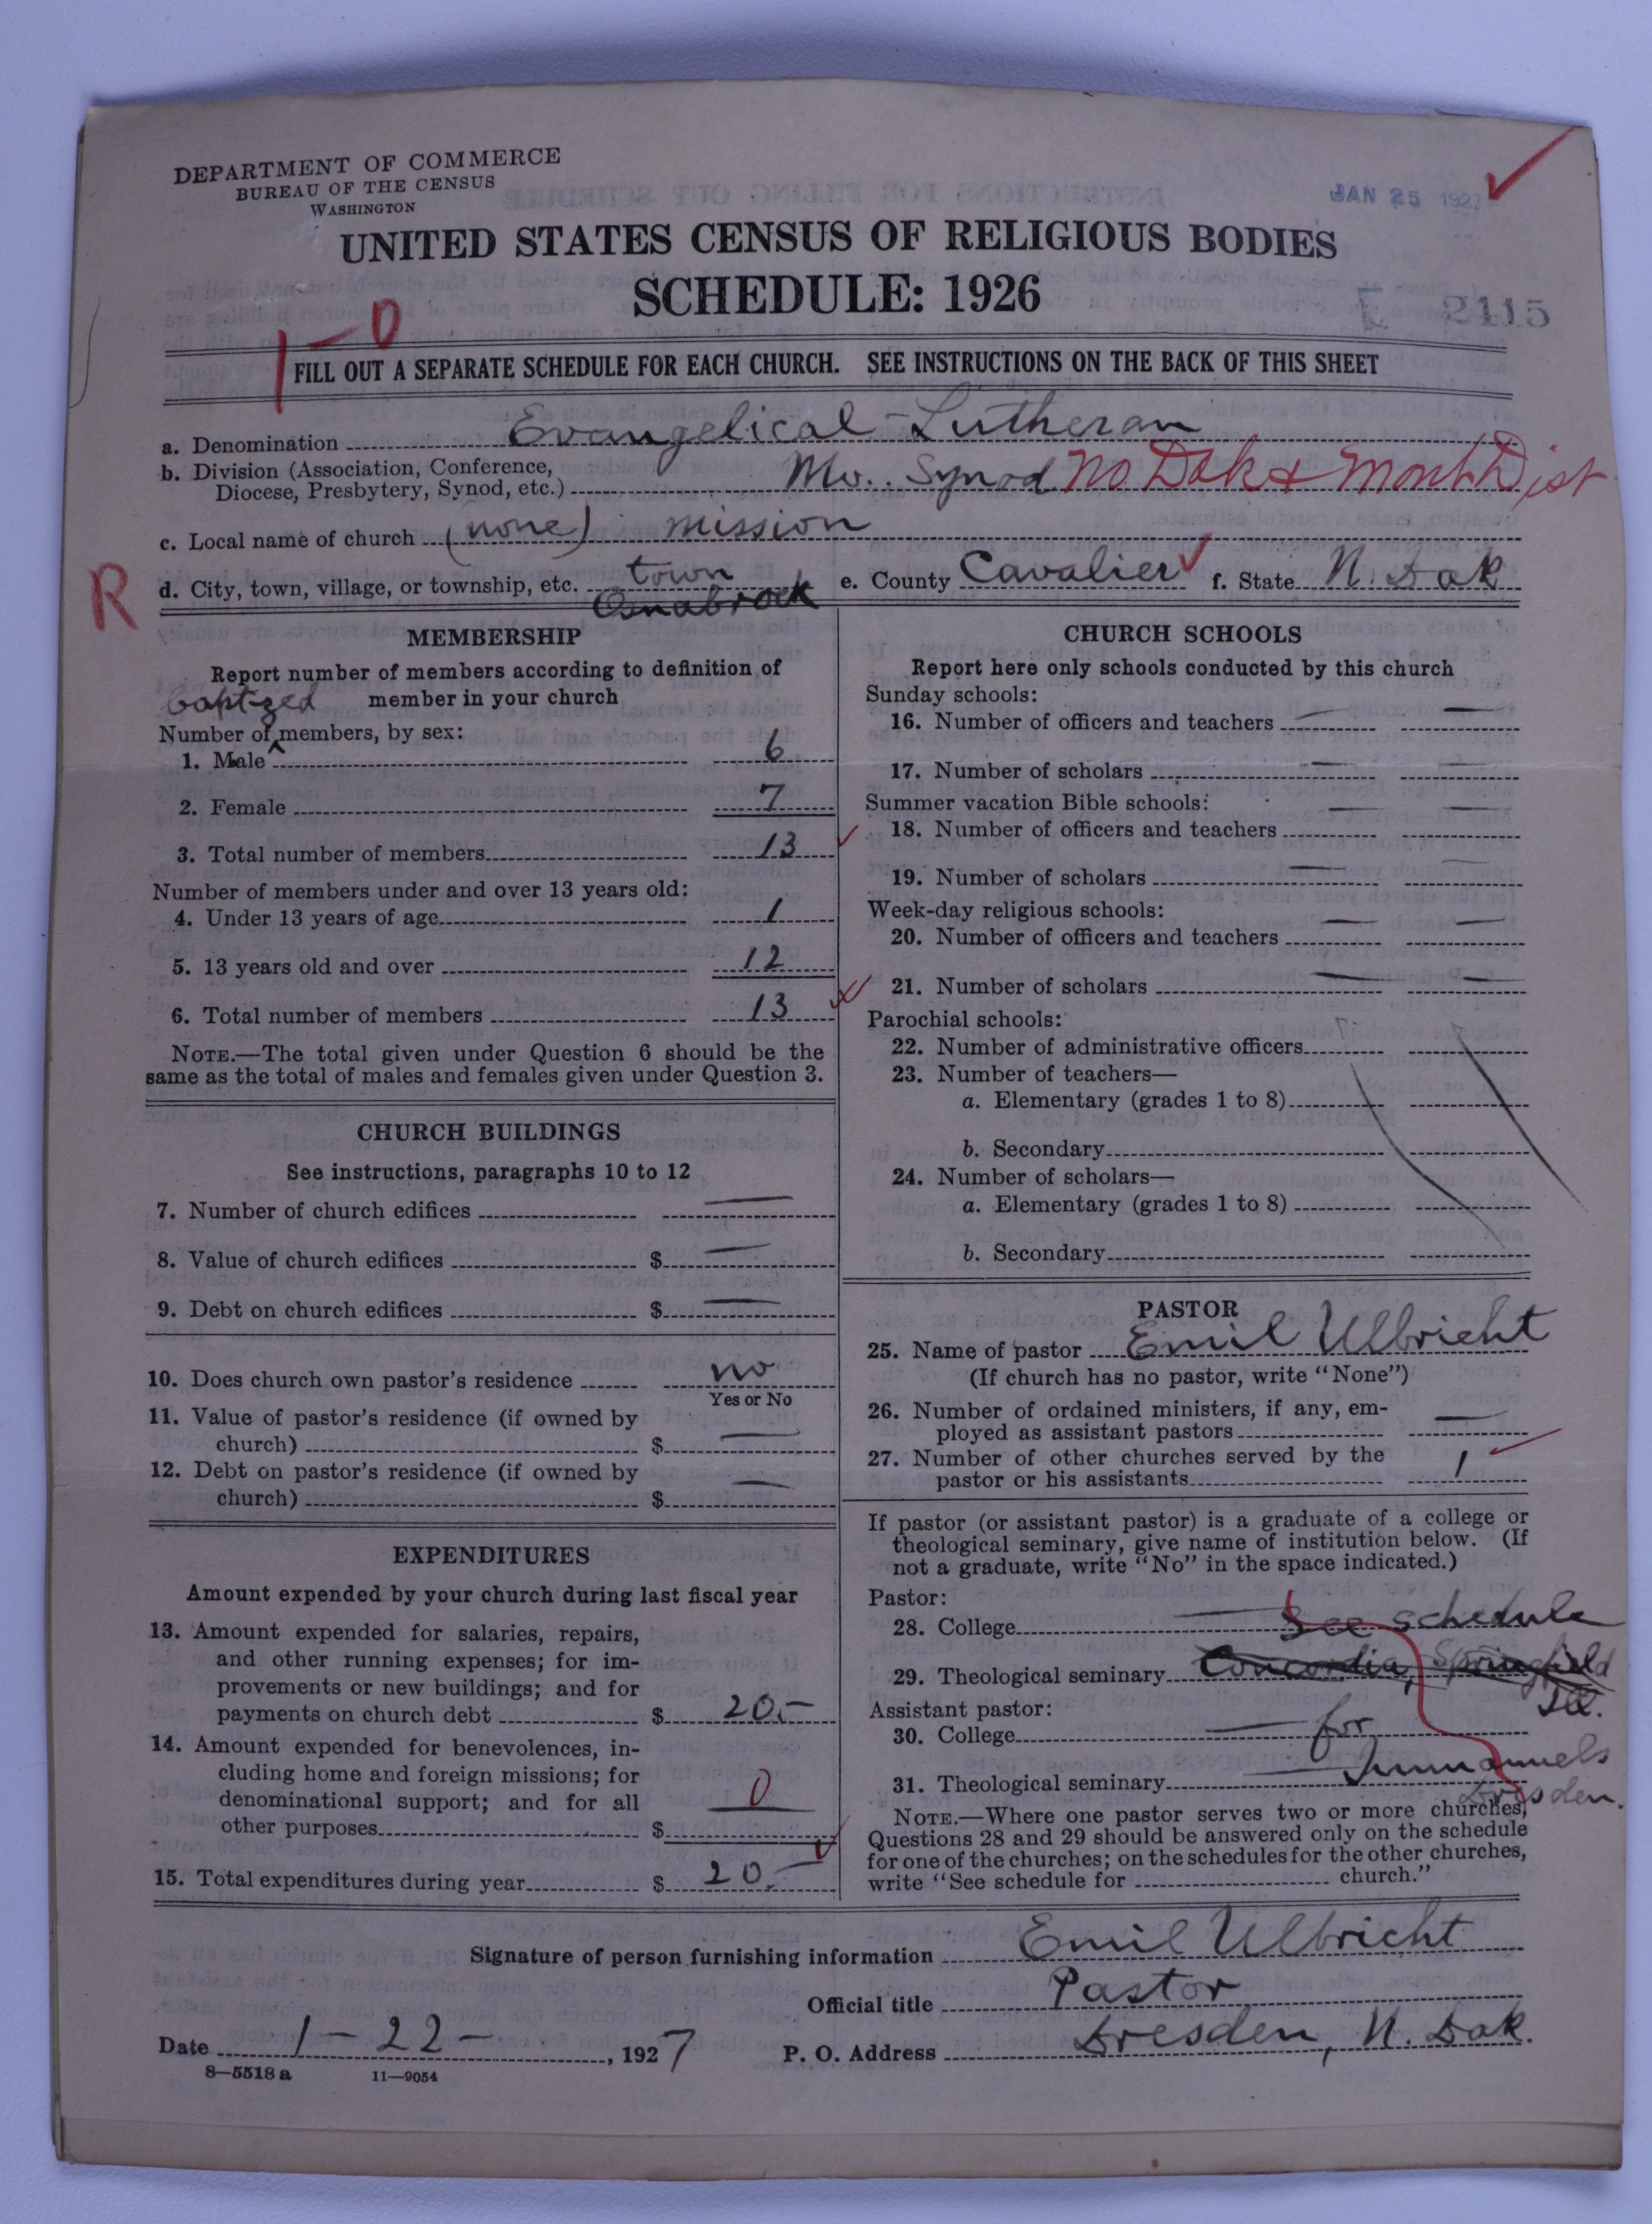 DEPARTMENT OF COMMERCE
BUREAU OF THE CENSUS
WASHINGTON
JAN 25 1927
UNITED STATES CENSUS OF RELIGIOUS BODIES
SCHEDULE: 1926
2115
1-0
FILL OUT A SEPARATE SCHEDULE FOR EACH CHURCH. SEE INSTRUCTIONS ON THE BACK OF THIS SHEET
a. Denomination Evangelical-Lutheran
b. Division (Association, Conference,
Diocese, Presbytery, Synod, etc.) Mo. Synod No Dak & Mont Dist
c. Local name of church (none) mission
R
d. City, town, village, or township, etc. town Osnabrock e. County Cavalier f. State N. Dak
MEMBERSHIP
Report number of members according to definition of
member in your church
baptized
Number of ^ members, by sex:
1. Male 6
2. Female 7
3. Total number of members 13
Number of members under and over 13 years old:
4. Under 13 years of age 1
5. 13 years old and over 12
6. Total number of members 13
NOTE.—The total given under Question 6 should be the
same as the total of males and females given under Question 3.
CHURCH BUILDINGS
See instructions, paragraphs 10 to 12
7. Number of church edifices —
8. Value of church edifices $ —
9. Debt on church edifices $ —
10. Does church own pastor's residence no
Yes or No
11. Value of pastor's residence (if owned by
church) $ —
12. Debt on pastor's residence (if owned by
church) $ —
EXPENDITURES
Amount expended by your church during last fiscal year
13. Amount expended for salaries, repairs,
and other running expenses; for im-
provements or new buildings; and for
payments on church debt $ 20.-
14. Amount expended for benevolences, in-
cluding home and foreign missions; for
denominational support; and for all
other purposes $ 0
15. Total expenditures during year $ 20.-
CHURCH SCHOOLS
Report here only schools conducted by this church
Sunday schools:
16. Number of officers and teachers — —
17. Number of scholars — —
Summer vacation Bible schools:
18. Number of officers and teachers — —
19. Number of scholars — —
Week-day religious schools:
20. Number of officers and teachers — —
21. Number of scholars — —
Parochial schools:
22. Number of administrative officers
23. Number of teachers—
a. Elementary (grades 1 to 8)
b. Secondary
24. Number of scholars—
a. Elementary (grades 1 to 8)
b. Secondary
PASTOR
25. Name of pastor Emil Ulbricht
(If church has no pastor, write "None")
26. Number of ordained ministers, if any, em-
ployed as assistant pastors —
27. Number of other churches served by the
pastor or his assistants 1
If pastor (or assistant pastor) is a graduate of a college or
theological seminary, give name of institution below. (If
not a graduate, write "No" in the space indicated.)
Pastor:
28. College — See schedule
29. Theological seminary Concordia, Springfield
Ill.
Assistant pastor:
30. College — for
31. Theological seminary — Immanuels
Dresden.
NOTE.—Where one pastor serves two or more churches,
Questions 28 and 29 should be answered only on the schedule
for one of the churches; on the schedules for the other churches,
write "See schedule for church."
Signature of person furnishing information Emil Ulbricht
Official title Pastor
Date 1-22-, 1927 P. O. Address Dresden, N. Dak.
8—5518 a 11—9054